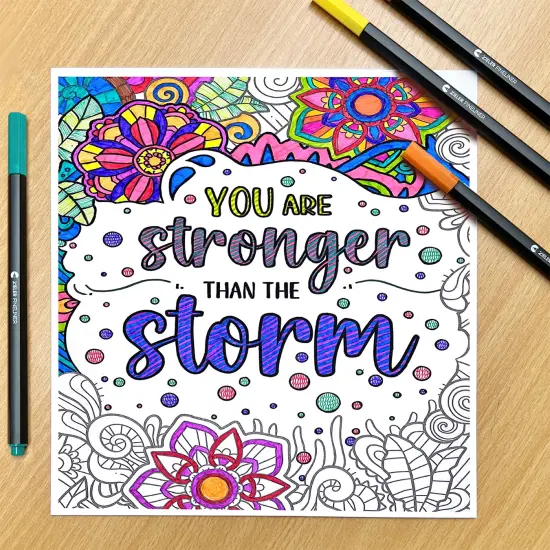 YOU ARE
stronger
THAN THE
storm
ZIELER FINELINER
ZIELER FINELINER
ZIELER FINELINER
ZIELER FINELINER